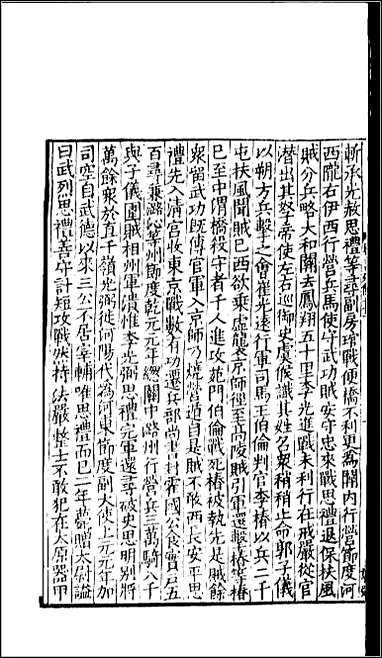 斬承光赦思禮等尋副房琯戰便橋不利更為關内行營節度河
西隴右伊西行營兵馬使守武功賊安守忠來戰思禮退保扶風
賊分兵略大和關去鳳翔五十里李光進戰未利行在戒嚴從官
潛出其孥子帝使左右巡御史虞候識其姓名衆稍稍止命郭子儀
以朔方兵擊之會崔光遠行軍司馬王伯倫判官李椿以兵二千
屯扶風聞賊已西欲乘虛襲京師徑至高陵賊引軍還擊椿等椿
已至中渭橋殺守者千人進攻苑門伯倫戰死椿被執先是賊餘
衆留武功既傳官軍入京師乃燒營遁自是賊不敢西長安平思
禮先入清宫收東京戰數有功遷兵部尚書封霍國公食實户五
百尋兼潞沁等州節度乾元元年總關中潞州行營兵三萬騎八千
與子儀圍賊相州軍潰惟李光弼思禮完軍還尋破史思明别將
萬餘衆於直千嶺光弼徙河陽代為河東節度副大使上元元年加
司空自武德以來三公不居宰輔唯思禮而已二年薨贈太尉謚
曰武烈思禮善守計短攻戰然持法嚴整士不敢犯在太原器甲